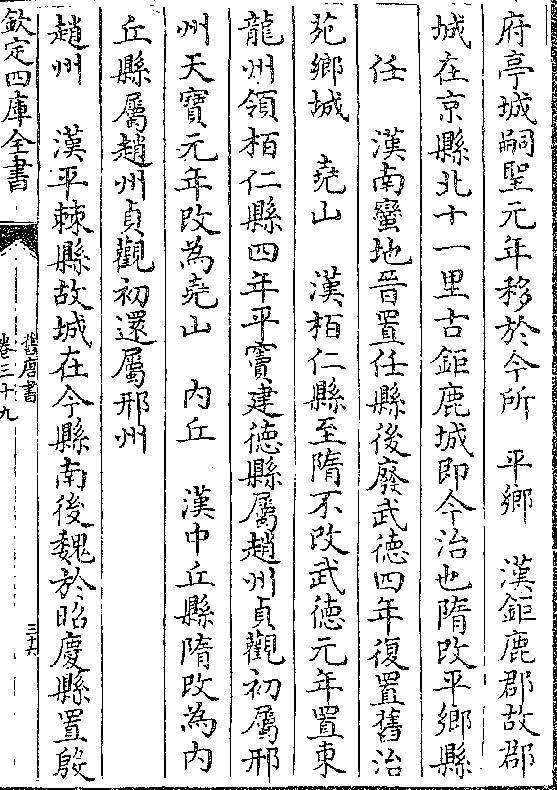 府亭城嗣聖元年移於今所　平鄉　漢鉅鹿郡故郡
城在京縣北十一里古鉅鹿城即今治也隋改平鄉縣
任　漢南蠻地晉置任縣後廢武德四年復置舊治
苑鄉城　堯山　漢栢仁縣至隋不改武德元年置東
龍州領栢仁縣四年平竇建德縣屬趙州貞觀初屬邢
州天寶元年改為堯山　內丘　漢中丘縣隋改為內
丘縣屬趙州貞觀初還屬邢州
趙州　漢平棘縣故城在今縣南後魏於昭慶縣置殷
欽定四庫全書
舊唐書
卷三十九
三十六